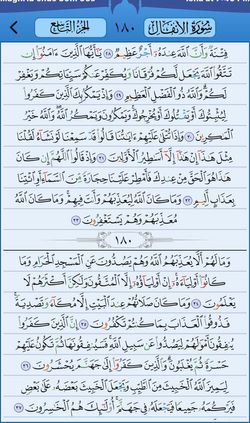 سُورَةُ الأَنفَالِ ١٨٠ الجُزْءُ التَّاسِعُ
فِتْنَةٌ وَأَنَّ ٱللَّهَ عِندَهُۥٓ أَجْرٌ عَظِيمٌ ٢٨ يَٰٓأَيُّهَا ٱلَّذِينَ ءَامَنُوٓا۟ إِن
تَتَّقُوا۟ ٱللَّهَ يَجْعَل لَّكُمْ فُرْقَانًا وَيُكَفِّرْ عَنكُمْ سَيِّـَٔاتِكُمْ وَيَغْفِرْ
لَكُمْ وَٱللَّهُ ذُو ٱلْفَضْلِ ٱلْعَظِيمِ ٢٩ وَإِذْ يَمْكُرُ بِكَ ٱلَّذِينَ كَفَرُوا۟
لِيُثْبِتُوكَ أَوْ يَقْتُلُوكَ أَوْ يُخْرِجُوكَ وَيَمْكُرُونَ وَيَمْكُرُ ٱللَّهُ وَٱللَّهُ خَيْرُ
ٱلْمَٰكِرِينَ ٣٠ وَإِذَا تُتْلَىٰ عَلَيْهِمْ ءَايَٰتُنَا قَالُوا۟ قَدْ سَمِعْنَا لَوْ نَشَآءُ لَقُلْنَا
مِثْلَ هَٰذَآ إِنْ هَٰذَآ إِلَّآ أَسَٰطِيرُ ٱلْأَوَّلِينَ ٣١ وَإِذْ قَالُوا۟ ٱللَّهُمَّ إِن كَانَ
هَٰذَا هُوَ ٱلْحَقَّ مِنْ عِندِكَ فَأَمْطِرْ عَلَيْنَا حِجَارَةً مِّنَ ٱلسَّمَآءِ أَوِ ٱئْتِنَا
بِعَذَابٍ أَلِيمٍ ٣٢ وَمَا كَانَ ٱللَّهُ لِيُعَذِّبَهُمْ وَأَنتَ فِيهِمْ وَمَا كَانَ ٱللَّهُ
مُعَذِّبَهُمْ وَهُمْ يَسْتَغْفِرُونَ ٣٣
١٨٠
وَمَا لَهُمْ أَلَّا يُعَذِّبَهُمُ ٱللَّهُ وَهُمْ يَصُدُّونَ عَنِ ٱلْمَسْجِدِ ٱلْحَرَامِ وَمَا
كَانُوٓا۟ أَوْلِيَآءَهُۥٓ إِنْ أَوْلِيَآؤُهُۥٓ إِلَّا ٱلْمُتَّقُونَ وَلَٰكِنَّ أَكْثَرَهُمْ لَا
يَعْلَمُونَ ٣٤ وَمَا كَانَ صَلَاتُهُمْ عِندَ ٱلْبَيْتِ إِلَّا مُكَآءً وَتَصْدِيَةً
فَذُوقُوا۟ ٱلْعَذَابَ بِمَا كُنتُمْ تَكْفُرُونَ ٣٥ إِنَّ ٱلَّذِينَ كَفَرُوا۟
يُنفِقُونَ أَمْوَٰلَهُمْ لِيَصُدُّوا۟ عَن سَبِيلِ ٱللَّهِ فَسَيُنفِقُونَهَا ثُمَّ تَكُونُ عَلَيْهِمْ
حَسْرَةً ثُمَّ يُغْلَبُونَ وَٱلَّذِينَ كَفَرُوٓا۟ إِلَىٰ جَهَنَّمَ يُحْشَرُونَ ٣٦
لِيَمِيزَ ٱللَّهُ ٱلْخَبِيثَ مِنَ ٱلطَّيِّبِ وَيَجْعَلَ ٱلْخَبِيثَ بَعْضَهُۥ عَلَىٰ بَعْضٍ
فَيَرْكُمَهُۥ جَمِيعًا فَيَجْعَلَهُۥ فِى جَهَنَّمَ أُو۟لَٰٓئِكَ هُمُ ٱلْخَٰسِرُونَ ٣٧